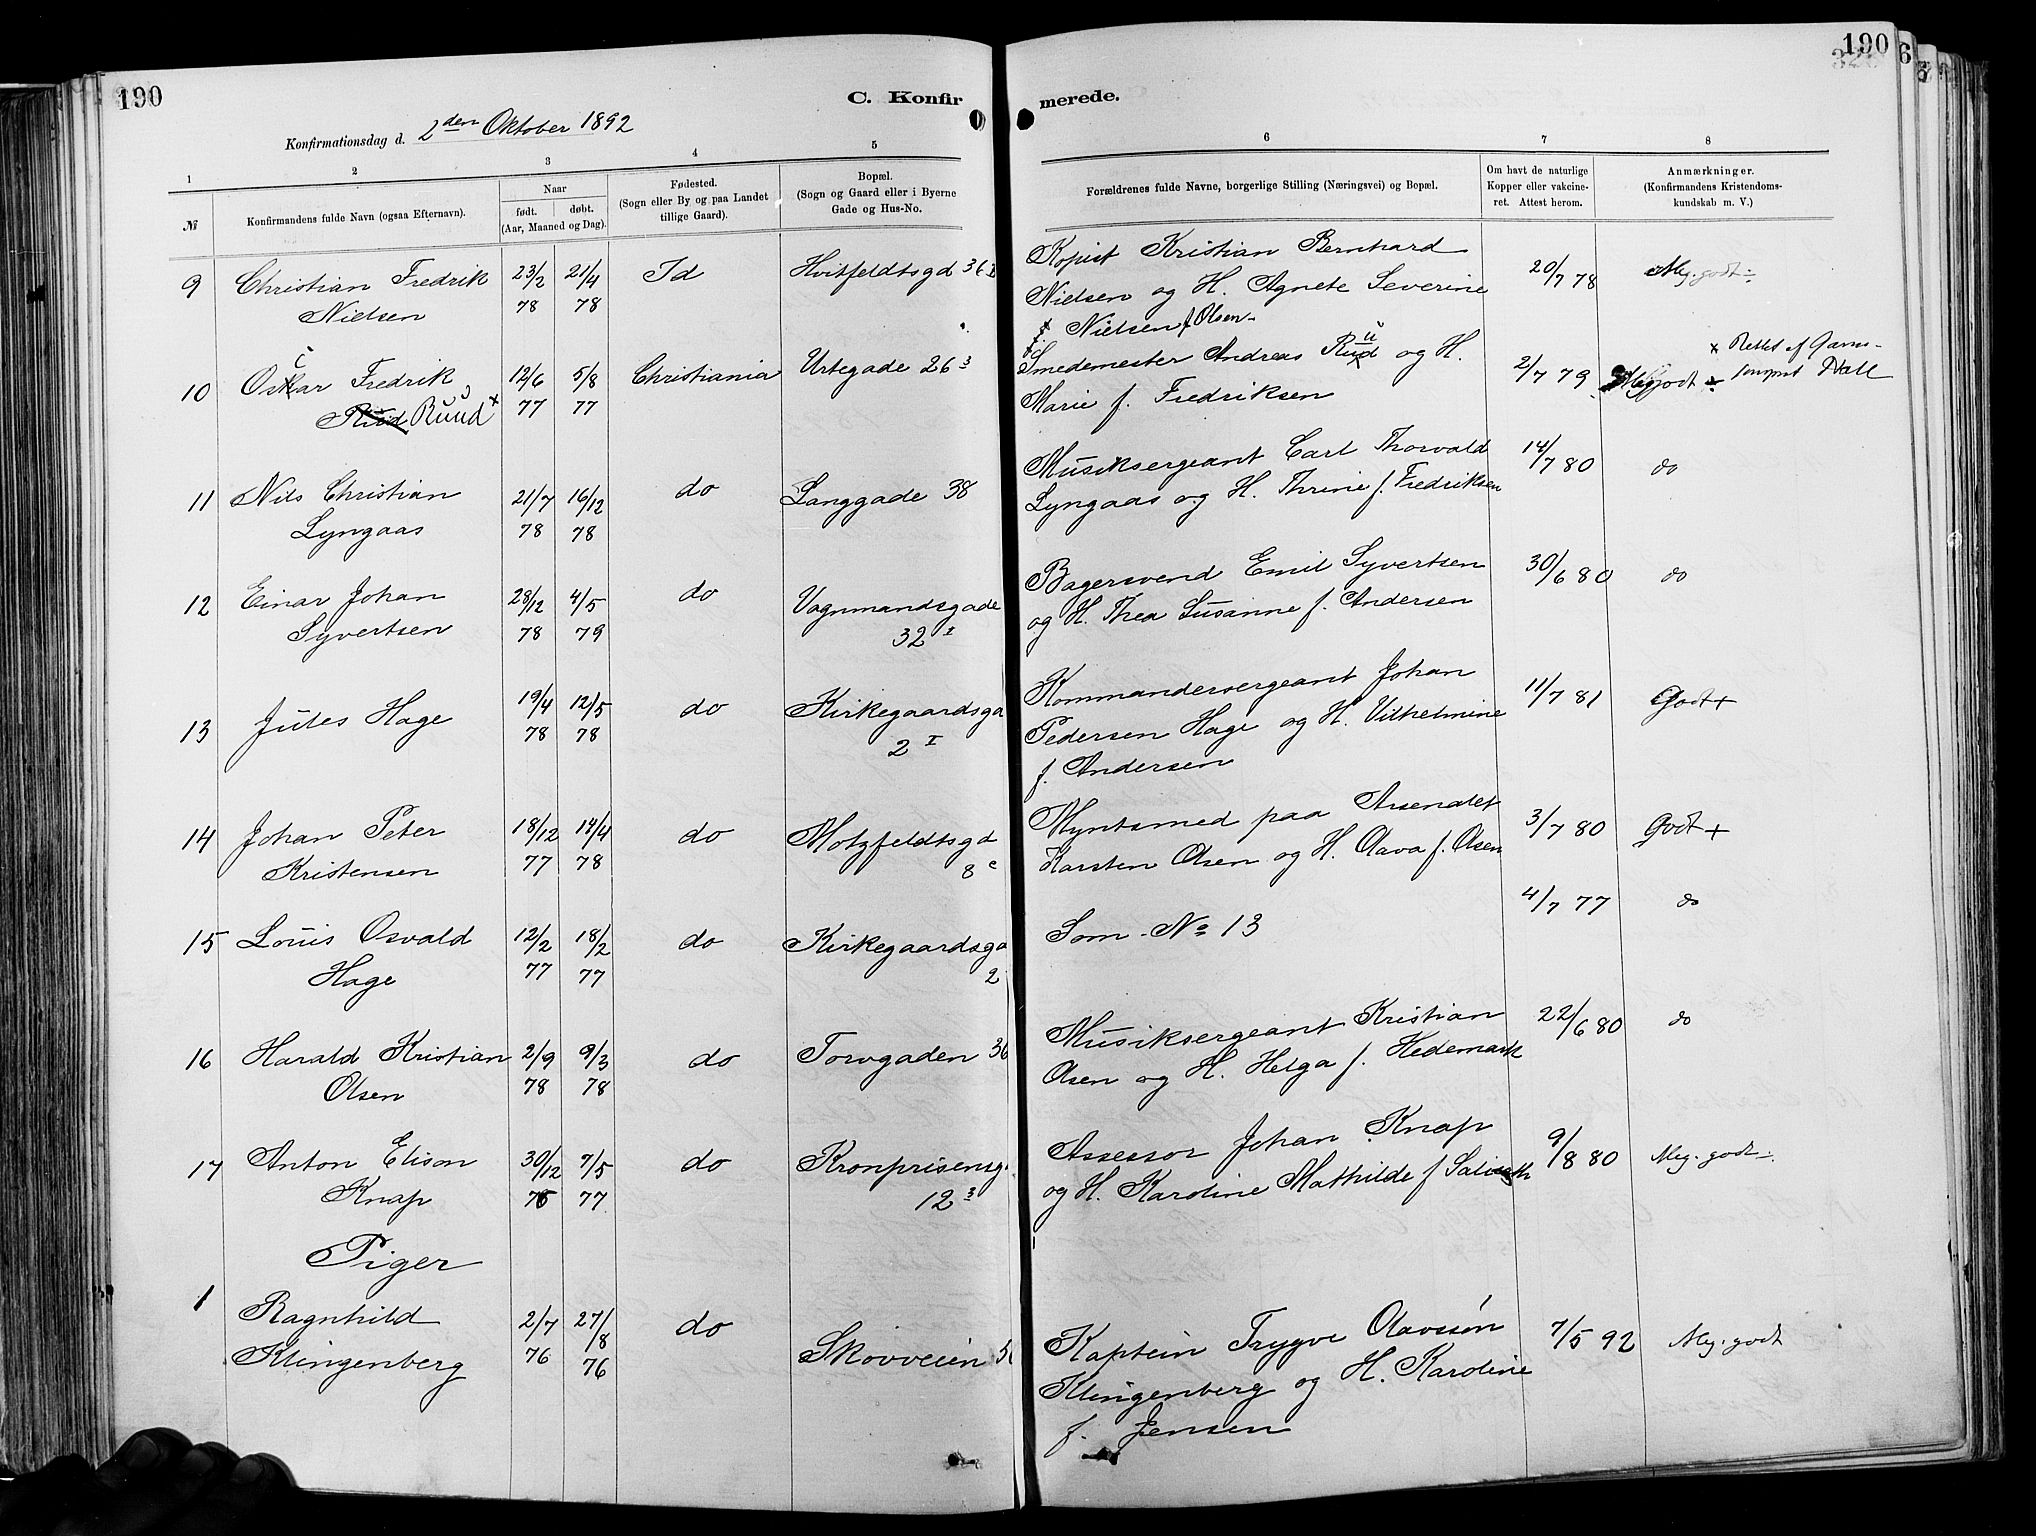 190
C. Konfir
merede.
190
Konfirmationsdag d. 2den Oktober 1892
1 2 3 4 5 6 7 8
№
Konfirmandens fulde Navn (ogsaa Efternavn).
Naar
født. døbt.
(Aar, Maaned og Dag).
Fødested.
(Sogn eller By og paa Landet
tillige Gaard).
Bopæl.
(Sogn og Gaard eller i Byerne
Gade og Hus-No.
Forældrenes fulde Navne, borgerlige Stilling (Næringsvei) og Bopæl.
Om havt de naturlige
Kopper eller vakcine-
ret. Attest herom.
Anmærkninger.
(Konfirmandens Kristendoms-
kundskab m. V.)
9 Christian Fredrik 23/2 21/4 Id Hvitfeldtsgd 36 Kopist Kristian Bernhard 20/7 78 Meg. godt÷
Nielsen 78 78 Nielsen og H. Agnete Severine
Nielsen f Olsen
10 Oscar Fredrik 12/6 5/8 Christiania Urtegade 26 3 Smedemester Andreas Ruud og H. 2/7 79 Meg godt ÷ x Rettet af
Rud Ruud x 77 77 Marie f. Fredriksen
11 Nils Christian 21/7 16/12 do Langgade 38 Musiksergeant Carl Thorvald 14/7 80 do
Lyngaas 78 78 Lyngaas og H. Thrine f. Fredriksen
12 Einar Johan 28/12 4/5 do Vognmandsgade Bagersvend Emil Syvertsen 30/6 80 do
Syvertsen 78 79 32 I og H. Thea Susanne f. Andersen
13 Jules Hage 19/4 12/5 do Kirkegaardsga Kommandersergeant Johan 11/7 81 Godt +
78 78 2 I Pedersen Hage og H. Vilhelmine
f. Andersen
14 Johan Peter 18/12 14/4 do Motzfeldtsgd Myntsmed paa Arsenalet 3/7 80 Godt +
Kristensen 77 78 8 c Karsten Olsen og H. Olava f. Olsen
15 Louis Osvald 12/2 18/2 do Kirkegaardsga Som No 13 4/7 77 do
Hage 77 77 2
16 Harald Kristian 2/9 9/3 do Torvgaden 36 Musiksergeant Kristian 22/6 80 do
Olsen 78 78 Olsen og H. Helga f. Hedemark
17 Anton Elison 30/12 7/5 do Kronprisensg. Assessor Johan Knap 9/8 80 Meg. godt÷
Knap 76 77 12 3 og H. Karoline Mathilde f
Piger
1 Ragnhild 2/7 27/8 do Skovveien Kaptein Trygve Olavssøn 7/5 92 Meg. godt
Klingenberg 76 76 Klingenberg og H. Karoline
f. Jensen